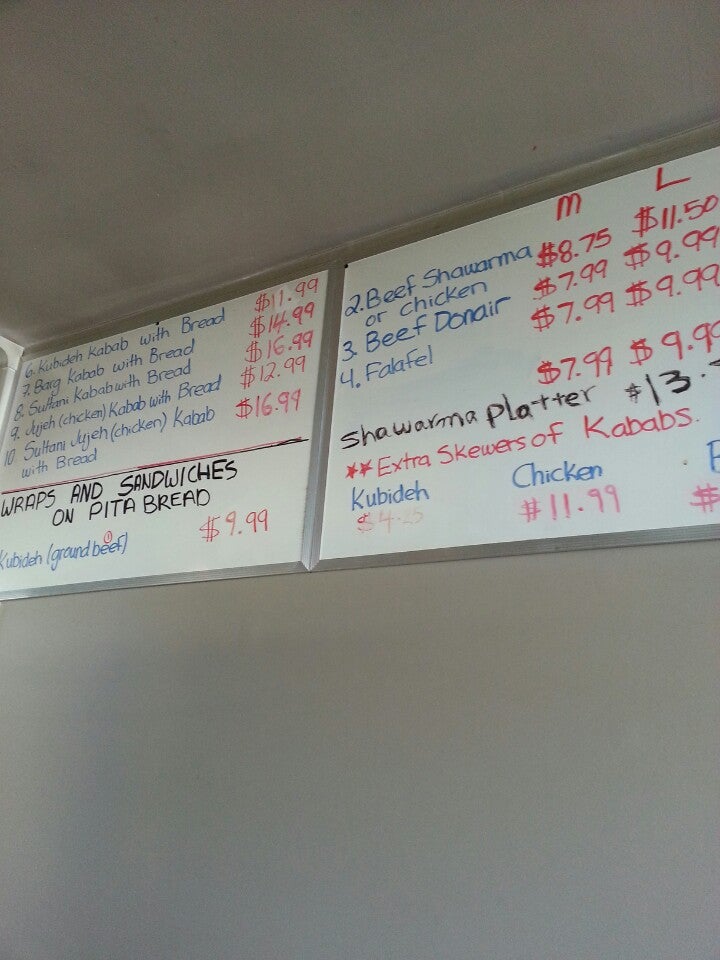 6. Kubideh Kabab with Bread $11.99
7. Barg Kabab with Bread $14.99
8. Sultani Kabab with Bread $16.99
9. Jujeh (chicken) Kabab with Bread $12.99
10. Sultani Jujeh (chicken) Kabab $16.99
with Bread
WRAPS AND SANDWICHES
ON PITA BREAD
Kubideh (ground beef) $9.99
M L
2. Beef Shawarma $8.75 $11.50
or Chicken $7.99 $9.99
3. Beef Donair $7.99 $9.99
4. Falafel $7.99 $9.99
Shawarma Platter $13.
** Extra Skewers of Kababs.
Kubideh Chicken
$4.25 $11.99 $